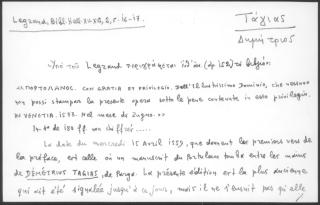 Legrand, Bibl. Hell. XV-XVI, 2, σ. 16-17.
Τάγιας
Δημήτριος
Ὑπὸ τοῦ Legrand περιγράφεται
«ΠΟΡΤΟΛΑΝΟΣ. CON GRATIA ET PRIVILEGIO. Dell'Illustrissimo Dominio, che nessuno
non possi stampar la presente opera sotto le pene contenute in esso privilegio.
IN VENETIA. 1573. Nel mese de Zugno.»
In-4º de 180 ff non chiffrés
La date du mercredi 15 avril 1559, que donnent les premiers vers de
la préface, est celle où un manuscrit du Portulan tomba entre les mains
de DÉMÉTRIUS TAGIAS, de Parga. La présente édition est la plus ancienne
qui ait été signalée jusqu'à ce jour, mais il ne s'ensuit pas qu'elle